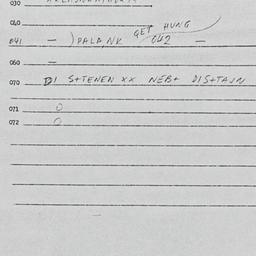 030
040
GET HUNG
041 — ) PALANK 042 —
060 —
070 DI S+TENEN XX NEB+ DIS+TAIN
071 0
072 0